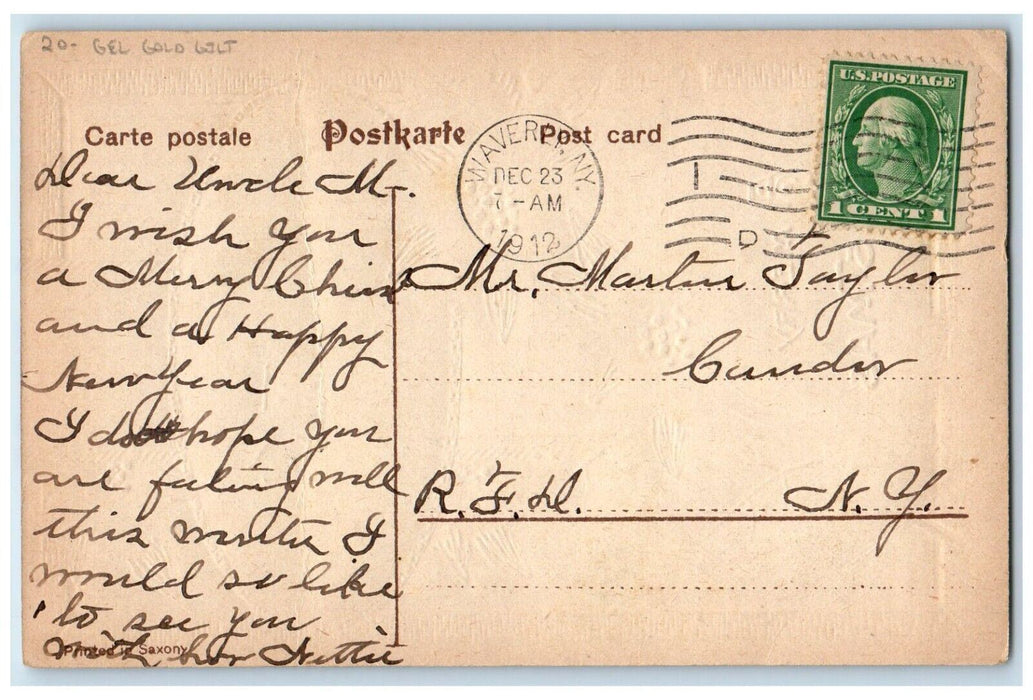 20- GEL GOLD GILT
Carte postale Postkarte Post card
U.S. POSTAGE
1 CENT 1
WAVERLY, N.Y.
DEC 23
7-AM
1912
D
Dear Uncle M.
I wish you
a Merry Chris
and a Happy
New Year
I do hope you
are feeling well
this winter I
would so like
to see you
with love Nettie
Mr. Martin Taylor
Candor
R.F.D. N.Y.
Printed in Saxony